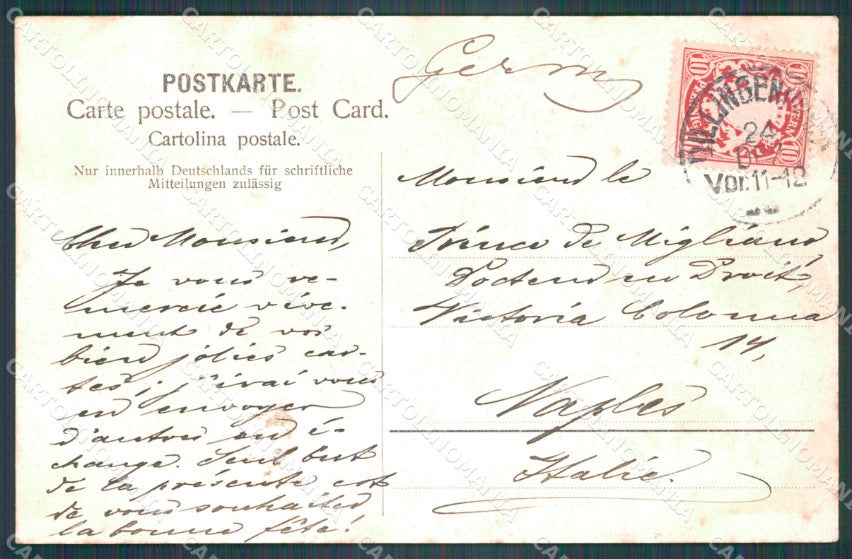 POSTKARTE.
Carte postale. — Post Card.
Cartolina postale.
Nur innerhalb Deutschlands für schriftliche
Mitteilungen zulässig
Germ
24
Vor. 11-12
BAYERN
10
10
10
Cher Monsieur,
Je vous re-
mercie vive-
ment de vos
bien jolies car-
tes; j'irai vous
en envoyer
d'autres en é-
change. Seul but
de la présente est
de vous souhaiter
la bonne fête!
Monsieur le
Prince de Migliano,
Docteur en Droit,
Victoria Colonna
14,
Naples
Italie.
CARTOLINOMANIA